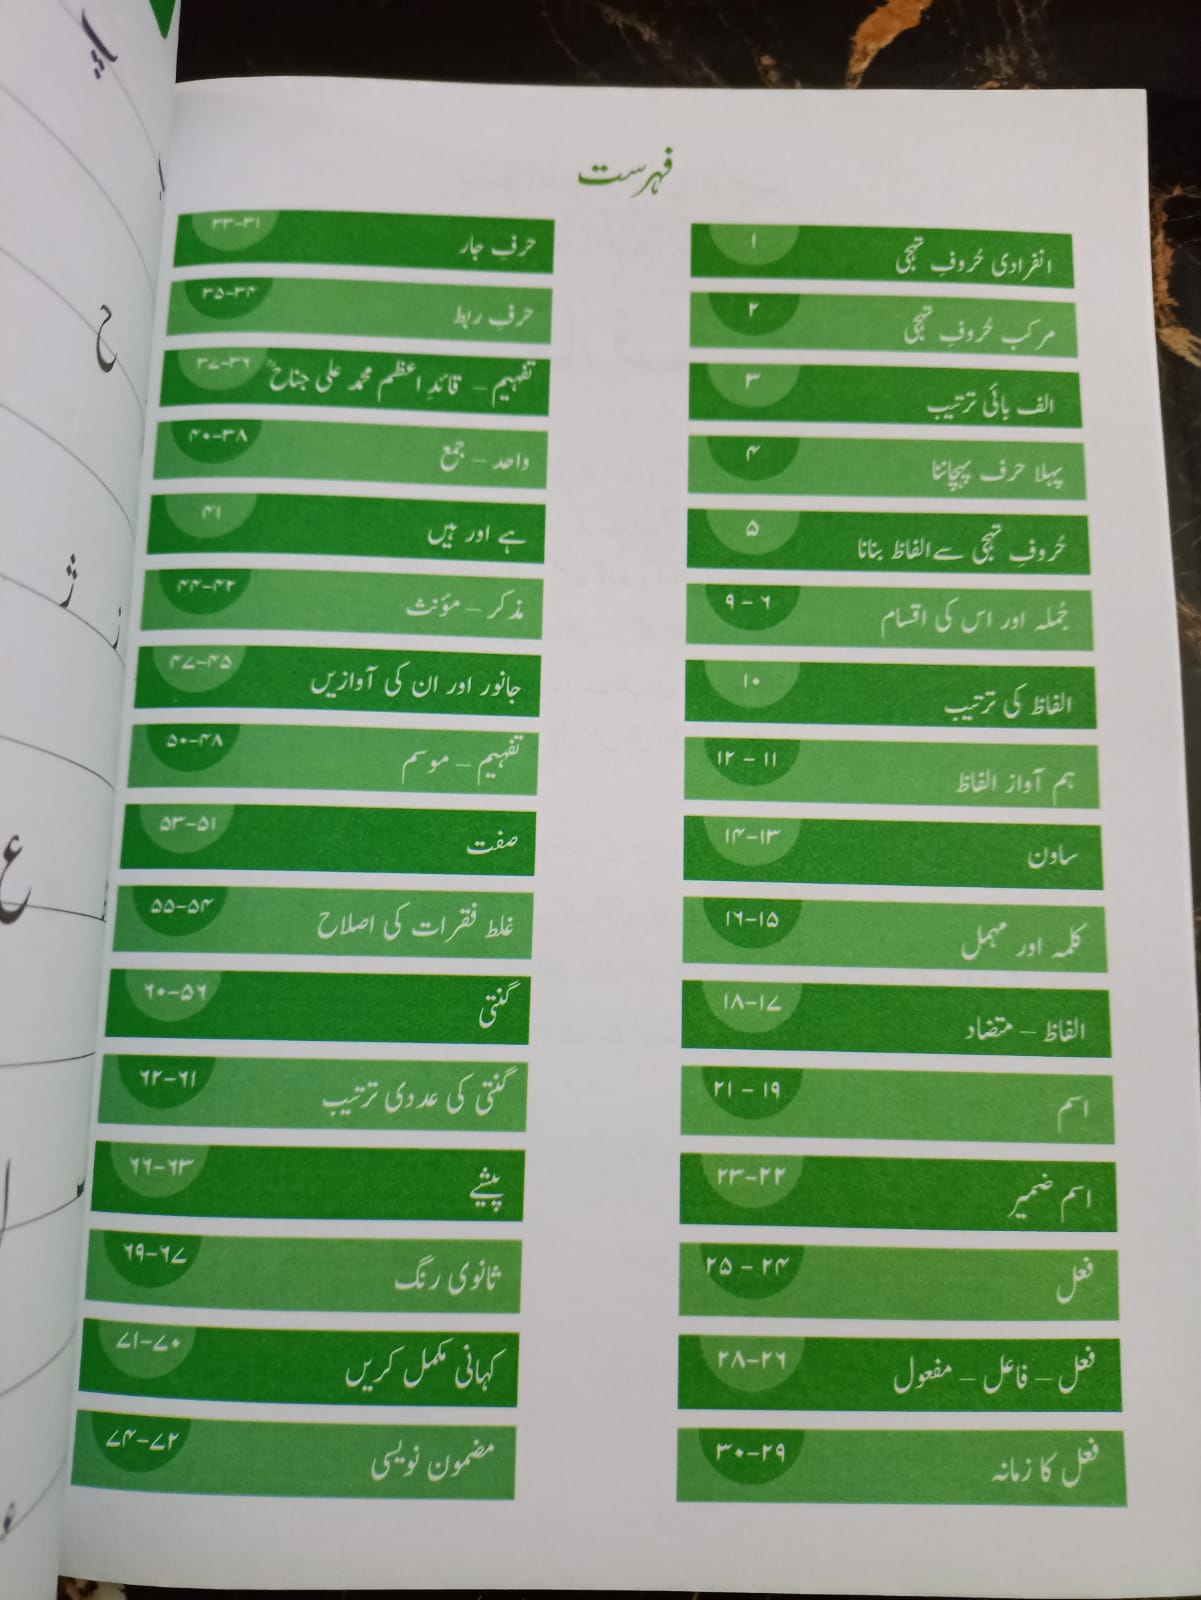 فہرست
انفرادی حُروفِ تہجی ۱
مرکب حُروفِ تہجی ۲
الف بائی ترتیب ۳
پہلا حرف پہچاننا ۴
حُروفِ تہجی سے الفاظ بنانا ۵
جُملہ اور اس کی اقسام ۶ - ۹
الفاظ کی ترتیب ۱۰
ہم آواز الفاظ ۱۱ - ۱۲
ساون ۱۳-۱۴
کلمہ اور مہمل ۱۵-۱۶
الفاظ – متضاد ۱۷-۱۸
اسم ۱۹ - ۲۱
اسم ضمیر ۲۲-۲۳
فعل ۲۴ - ۲۵
فعل – فاعل – مفعول ۲۶-۲۸
فعل کا زمانہ ۲۹-۳۰
حرفِ جار ۳۱-۳۳
حرفِ ربط ۳۴-۳۵
تفہیم – قائدِ اعظم محمد علی جناحؒ ۳۶-۳۷
واحد – جمع ۳۸-۴۰
ہے اور ہیں ۴۱
مذکر – مؤنث ۴۲-۴۴
جانور اور ان کی آوازیں ۴۵-۴۷
تفہیم – موسم ۴۸-۵۰
صفت ۵۱-۵۳
غلط فقرات کی اصلاح ۵۴-۵۵
گنتی ۵۶-۶۰
گنتی کی عددی ترتیب ۶۱-۶۲
پیشے ۶۳-۶۶
ثانوی رنگ ۶۷-۶۹
کہانی مکمل کریں ۷۰-۷۱
مضمون نویسی ۷۲-۷۴
ح
ع